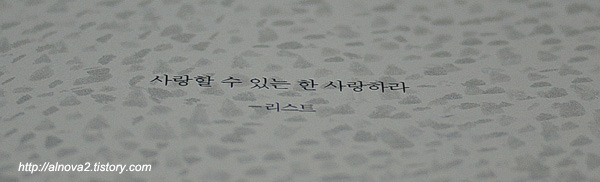 사랑할 수 있는 한 사랑하라
－리스트
http://alnova2.tistory.com